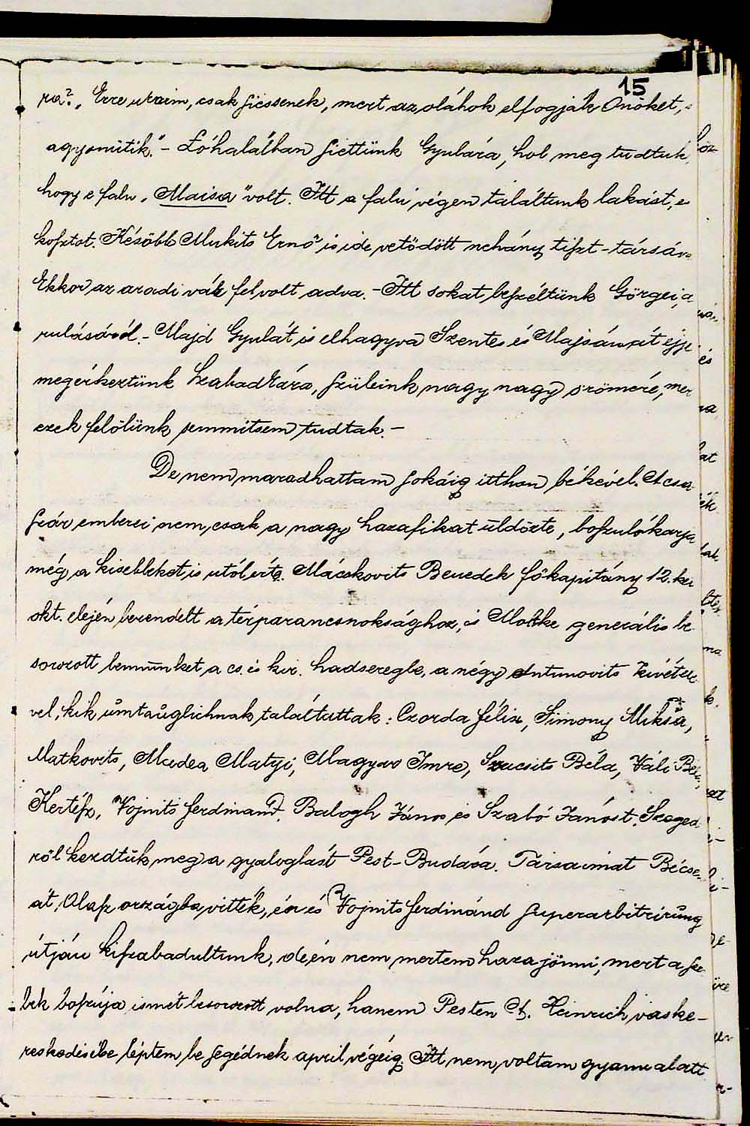 15
ra? „Erre uraim, csak siessenek, mert az oláhok elfogják Önöket, s
agyonütik." – Lóhalálban siettünk Gyulára, hol megtudtuk
hogy e falu „Maisa" volt. Itt a falu végen találtunk lakást, s
kosztot. Később Mukits Ernő is ide vetődött néhány tiszt-társáv
Ekkor az aradi vár felvolt adva. – Itt sokat beszéltünk Görgei á
rulásáról. – Majd Gyulát is elhagyva Szentes és Majsának éjje
megérkeztünk Szabadkára, szüleink nagy nagy örömére, mer
ezek felőlünk semmitsem tudtak. –
De nem maradhattam sokáig itthon békével. A csá
szár emberei nem csak a nagy hazafikat üldözte, boszuló karja
még a kisebbeket is utólérte. Mácskovits Benedek főkapitány 12. ke
okt. elején berendelt a térparancsnoksághoz, és Moltke generális be
sorozott bennünket a cs. és kir. hadseregbe, a négy Antunovits kivéte
vel, kik úmtauglichnak találtattak: Czorda Félix, Simony Miksa,
Matkovits, Mudea Matyi, Magyar Imre, Szucsits Béla, Váli Bé
Kertész, Vojnits Ferdinand, Balogh János és Szabó Jánost. Szeged
ről kezdtük meg a gyaloglást Pest-Budára. Társaimat Bécse
át, Olasz országba vitték, én és Vojnits Ferdinánd superarbitrirung
útján kiszabadultunk, de én nem mertem haza jönni, mert a sze
bek boszúja ismét besorozott volna, hanem Pesten A. Heinrich vaske-
reskedésébe léptem be segédnek april végéig. Itt nem voltam gyanu alatt